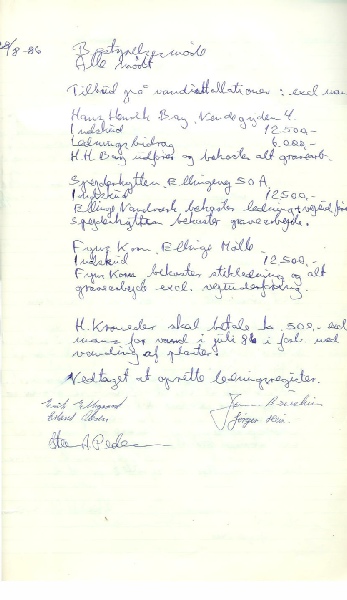 /8-86 Bestyrelsesmøde
Alle mødt
Tilbud på vandinstallationer : excl. moms
Hans Henrik Bay, Vendegyden 4.
Indskud 12.500,-
Ledningsbidrag 6.000,-
H.H. Bay udfører og bekoster alt gravearb.
Spejderhytten, Ellingevej 50A
Indskud 12500,-
Ellinge Vandværk bekoster ledning + vejled. for
Spejderhytten bekoster gravearbejde.
Fyns Kom. Ellinge Mølle
Indskud 12.500,-
Fyns Kom bekoster stikledning og alt
gravearbejde excl. vejunderføring.
H. skal betale kr. 500,- excl
moms for vand i juli 86 i forb. med
vanding af planter.
Vedtaget at oprette ledningsregister.
Erik
Jørgen